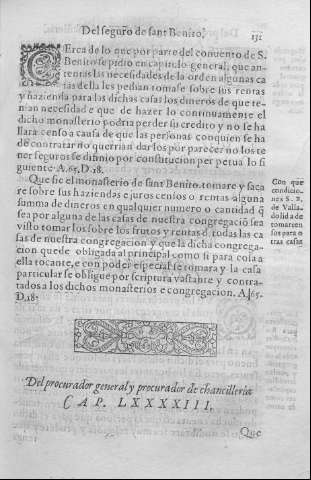 Del seguro de sant Benito.
131
CErca de lo que por parte del conuento de S.
Benito se pidio en capitulo general, que an-
rentas las necesidades de la orden algunas ca
sas della les pedian tomase sobre sus rentas
y hazienda para las dichas casas los dineros de que te-
nian necesidad e que de hazer lo continuamente el
dicho monasterio podria perder su credito y no se ha
llara censo a causa de que las personas con quien se ha
de contratar no querrian darlos por parecer no los te
ner seguros se difinio por constitucion perpetua lo si
guiente A.65, D.18.
Que si el monasterio de sant Benito, tomare y saca
re sobre sus haziendas e juros censos o rentas alguna
summa de dineros en qualquier numero o cantidad q̃
sea por alguna de las casas de nuestra congregació sea
visto tomar los sobre los frutos y rentas d̃ todas las ca
sas de nuestra congregacion y que la dicha congrega-
cion quede obligada al principal como si para cola a
ella tocante, e con poder especial se tomara y la casa
particular se obligue por scriptura vastante y contra-
tados a los dichos monasterios e congregacion. A.65.
D.18.
Con que
condicio-
nes S. B.
de Valla-
dolid a de
tomar cen
sos para o
tras casas
Del procurador general y procurador de chancilleria
CAP. LXXXXIII,
Que